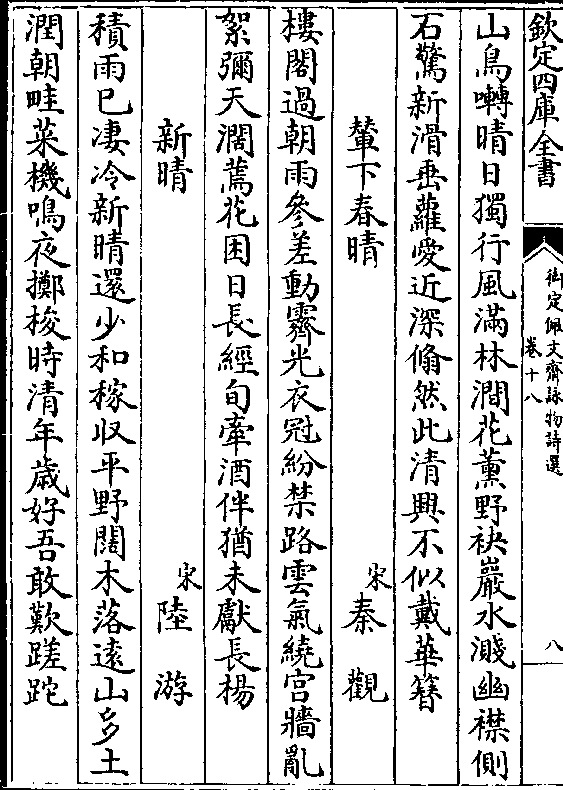 欽定四庫全書
御定佩文齋詠物詩選
卷十八
八
山鳥囀晴日獨行風滿林澗花薰野袂巖水濺幽襟側
石驚新滑垂蘿愛近深翛然此清興不似戴華簪
輦下春晴
宋秦觀
樓閣過朝雨參差動霽光衣冠紛禁路雲氣繞宫牆亂
絮彌天濶蔫花困日長經旬牽酒伴猶未獻長楊
新晴
宋陸游
積雨已凄冷新晴還少和稼収平野闊木落逺山多土
潤朝畦菜機鳴夜擲梭時清年歲好吾敢歎蹉跎